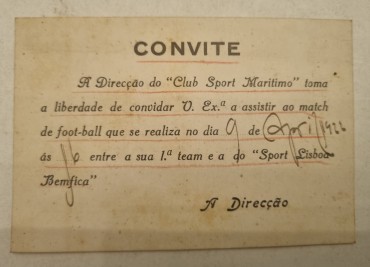 CONVITE
A Direcção do "Club Sport Maritimo" toma
a liberdade de convidar V. Ex.ª a assistir ao match
de foot-ball que se realiza no dia 9 de April 1922
ás entre a sua 1.ª team e a do "Sport Lisboa
Bemfica"
A Direcção